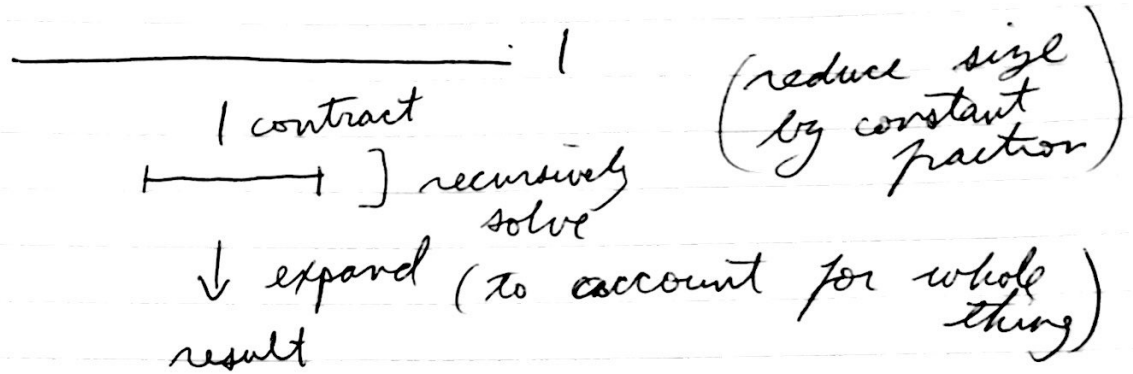 contract
(reduce size
by constant
fraction)
] recursively
solve
↓ expand (to account for whole
thing)
result